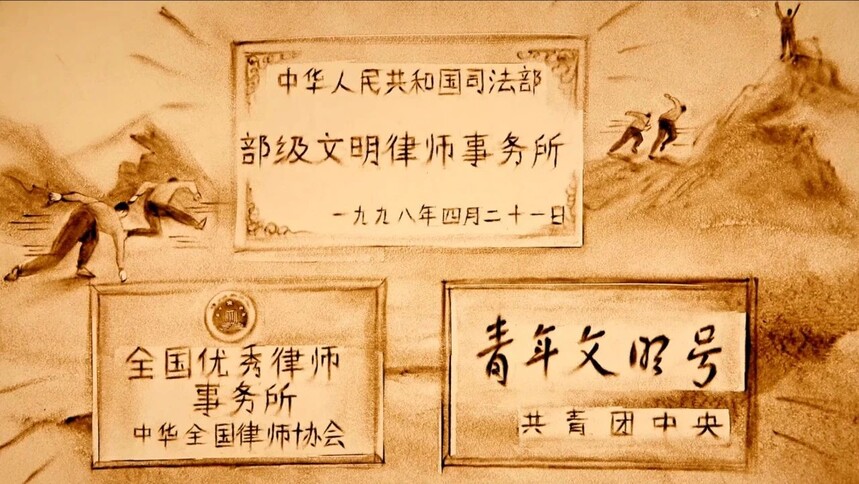 中华人民共和国司法部
部级文明律师事务所
一九九八年四月二十一日
全国优秀律师
事务所
中华全国律师协会
青年文明号
共青团中央